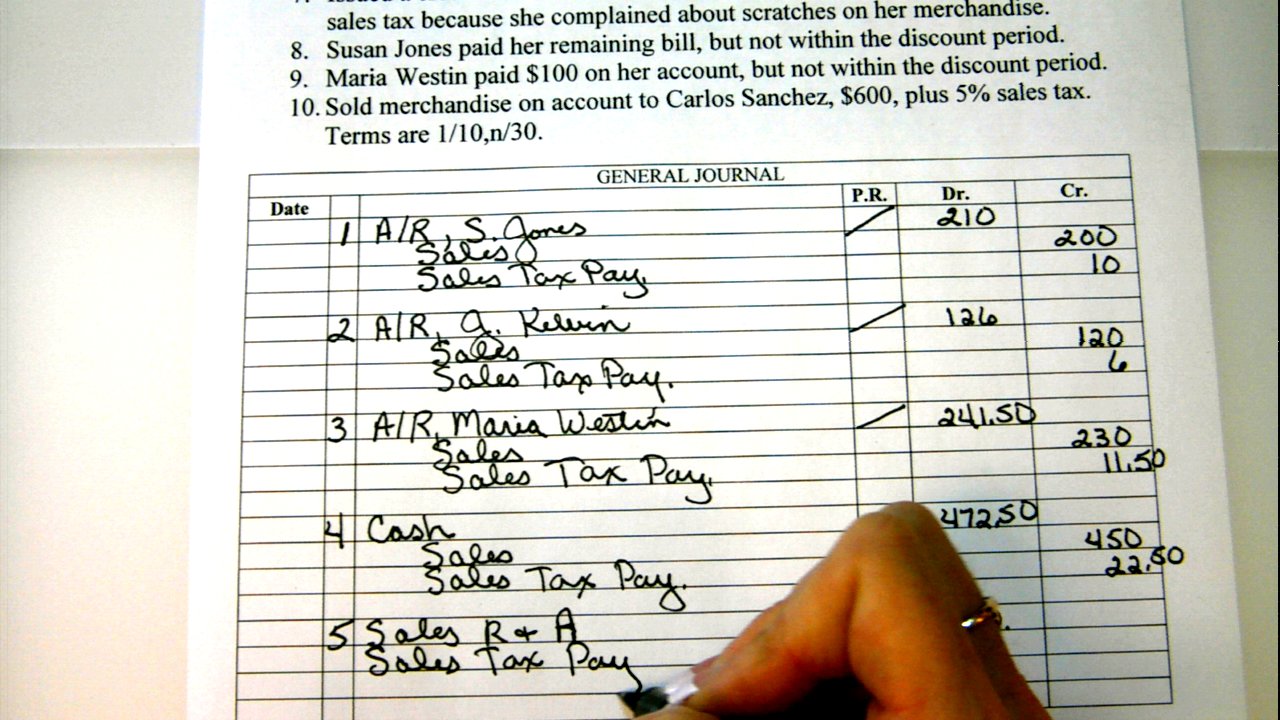 sales tax because she complained about scratches on her merchandise.
8. Susan Jones paid her remaining bill, but not within the discount period.
9. Maria Westin paid $100 on her account, but not within the discount period.
10. Sold merchandise on account to Carlos Sanchez, $600, plus 5% sales tax.
Terms are 1/10,n/30.
GENERAL JOURNAL
Date P.R. Dr. Cr.
1 A/R, S. Jones 210
Sales 200
Sales Tax Pay. 10
2 A/R, J. Kelvin 126
Sales 120
Sales Tax Pay. 6
3 A/R, Maria Westin 241.50
Sales 230
Sales Tax Pay. 11.50
4 Cash 472.50
Sales 450
Sales Tax Pay. 22.50
5 Sales R + A
Sales Tax Pay